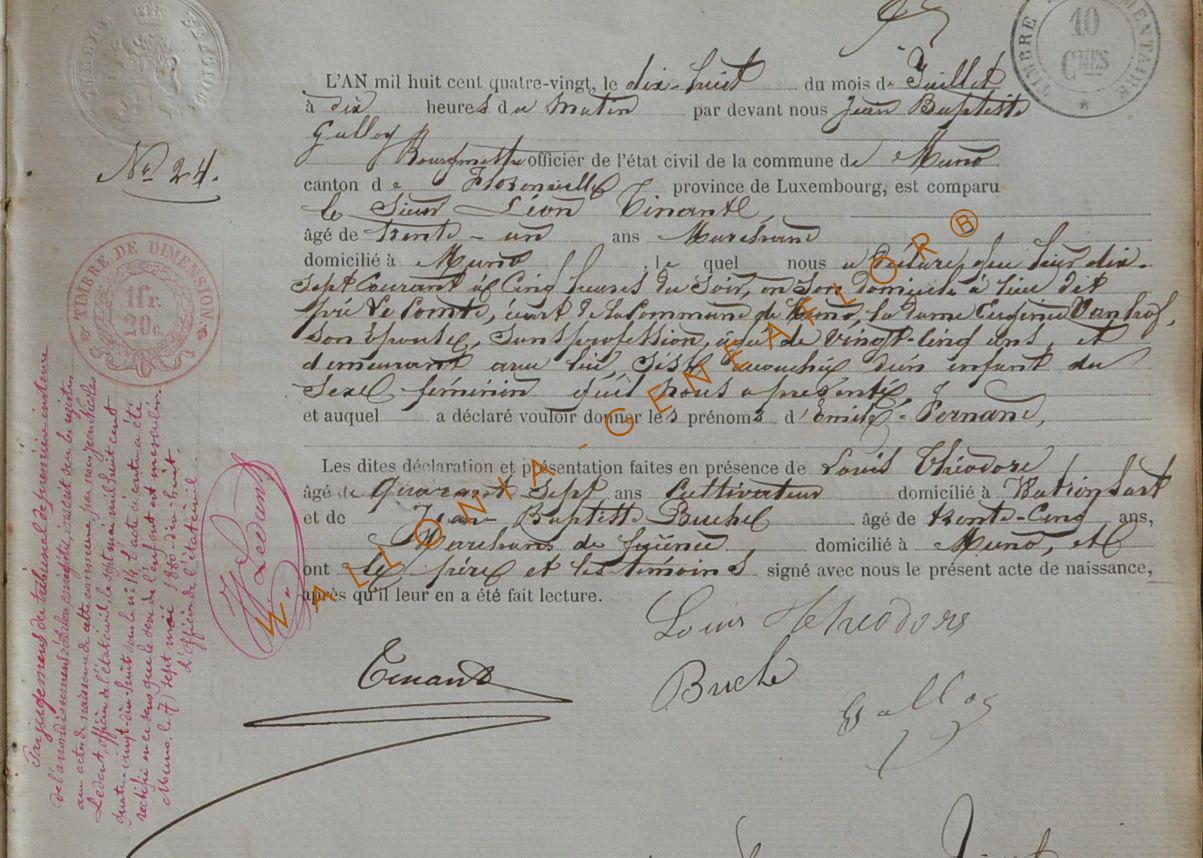 TIMBRE
10
Cmes
TIMBRE
L'AN mil huit cent quatre-vingt, le dix-huit du mois de Juillet
à dix heures du Matin par devant nous Jean Baptiste
Galloy
Bourgmestre officier de l'état civil de la commune de Muno
canton de Florenville province de Luxembourg, est comparu
le Sieur Léon Tinant,
âgé de trente-un ans Marchand
domicilié à Muno, le quel nous a déclaré que hier dix-
sept Courant à Cinq heures du Soir, en son domicile à lieu dit
Pré Le Comte, écart de la Commune de Muno, la dame Eugénie
son épouse, sans profession, âgée de Vingt-Cinq ans, et
demeurant avec lui, s'est accouchée d'un enfant du
Sexe féminin qu'il nous a présenté,
et auquel a déclaré vouloir donner les prénoms d'Emile-Fernand,
Les dites déclaration et présentation faites en présence de Louis Théodore
âgé de Quarant-Sept ans Cultivateur domicilié à Watrinsart
et de Jean-Baptiste Buchel âgé de trente-Cinq ans,
Marchand de domicilié à Muno, et
ont le père et les témoins signé avec nous le présent acte de naissance,
après qu'il leur en a été fait lecture.
Louis Théodore
Tinant
Galloy
No 24.
TIMBRE DE DIMENSION
1 fr.
20 c.
Par jugement du tribunal de première instance
de l'arrondissement
aux actes de naissance de cette commune, par nous Jean Nicolas
Ledant, officier de l'état civil, le sept mai mil huit cent
quatre-vingt-dix-huit sous le no 14, l'acte ci-contre a été
rectifié en ce sens que le sexe de l'enfant est masculin.
Muno, le 7 sept mai 1800-dix-huit.
L'officier de l'état civil,
Ledant
WALLONIA - GENEAFLOR ®